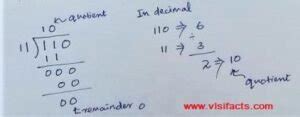 ↖ quotient
10
11 ) 110
11
000
00
00
↑ remainder 0
In decimal
110 ⇒ 6
÷
11 ⇒ 3
2 ⇒ 10
↖ quotient
www.visifacts.com